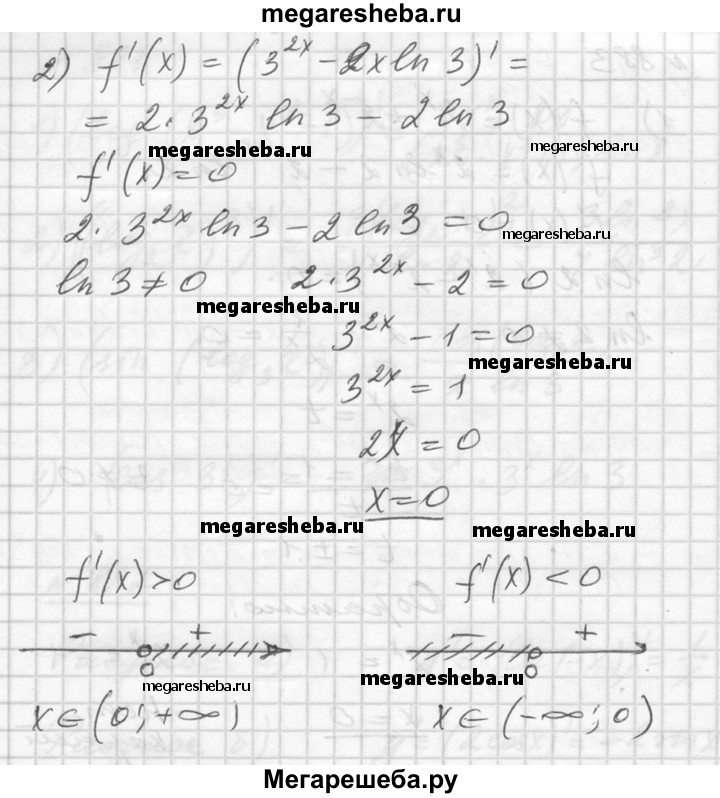 megaresheba.ru
2) f'(x) = (3^{2x} - 2x ln 3)' =
= 2 · 3^{2x} ln 3 - 2 ln 3
megaresheba.ru megaresheba.ru
f'(x) = 0
2 · 3^{2x} ln 3 - 2 ln 3 = 0
megaresheba.ru
ln 3 ≠ 0 2 · 3^{2x} - 2 = 0
megaresheba.ru
3^{2x} - 1 = 0
megaresheba.ru
3^{2x} = 1
2x = 0
x = 0
megaresheba.ru megaresheba.ru
f'(x) > 0 f'(x) < 0
- + - +
0 0
megaresheba.ru megaresheba.ru
x ∈ (0; +∞) x ∈ (-∞; 0)
Мегарешеба.ру